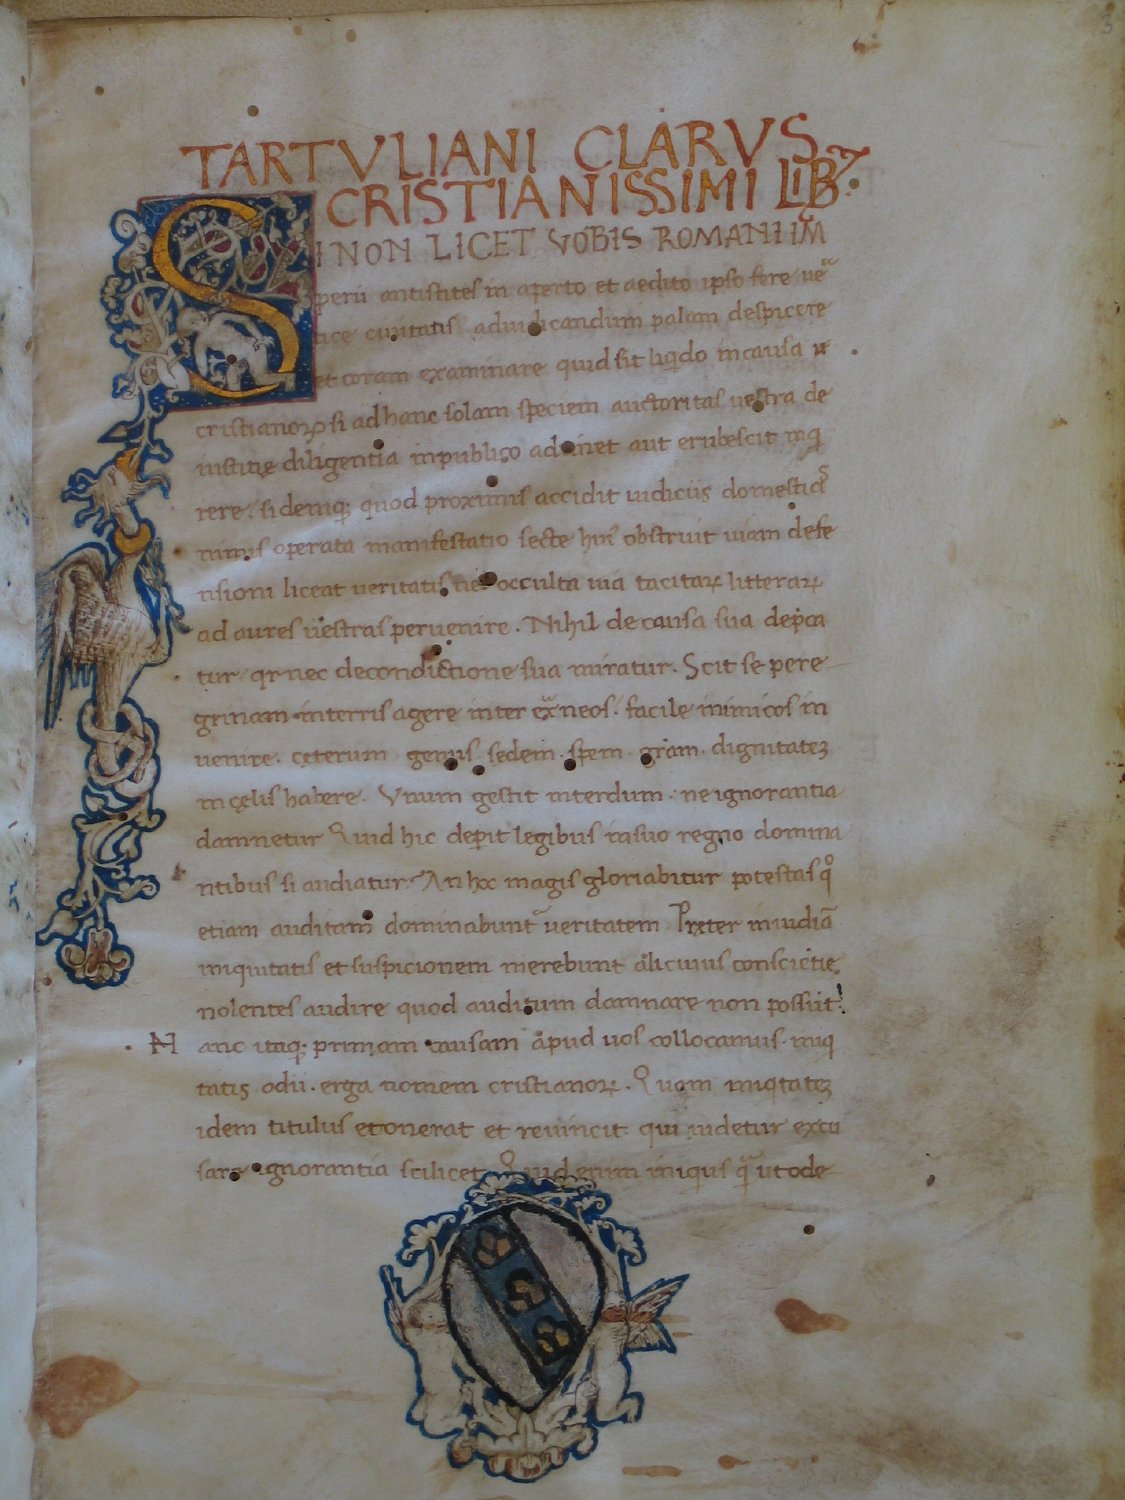 3
TARTVLIANI CLARVS
CRISTIANISSIMI LIB
SI NON LICET VOBIS ROMANI IM
perii antistites in aperto et aedito ipso fere ue
tice ciuitatis adiudicandum palam despicere
et coram examinare quid sit liqido in causa
cristianoꝝ si ad hanc solam speciem auctoritas uestra de
iustitię diligentia in publico aut erubescit inq
rere. si deniq; quod proximis accidit iudiciis domestic
nimis operata manifestatio secte obstruit uiam defe
nsioni liceat ueritatis uel occulta uia tacitaꝝ litteraꝝ
ad aures uestras peruenire. Nihil de causa sua dep̃ca
tur. qr nec de condictione sua miratur. Scit se pere
grinam in terris agere inter ex̃neos. facile inimicos in
uenire. cęterum genus. sedem. spem. gr̃am. dignitatez
in cęlis habere. Vnum gestit interdum. ne ignorantia
damnetur Quid hic dep̃it legibus in suo regno domina
ntibus si audiatur. An hoc magis gloriabitur potestas qͦ
etiam auditam dominabunt᷑ ueritatem Pręter inuidiā
iniquitatis et suspicionem merebunt alicuius consciẽtie
nolentes audire quod auditum damnare non possint.
N anc itaq; primam causam apud uos collocamus. iniq
tatis odii. erga nomem cristianoꝝ. Quam iniqtatez
idem titulus et onerat et reuincit. qui uidetur excu
sare ignorantia scilicet. Quid enim iniqus qã ut ode